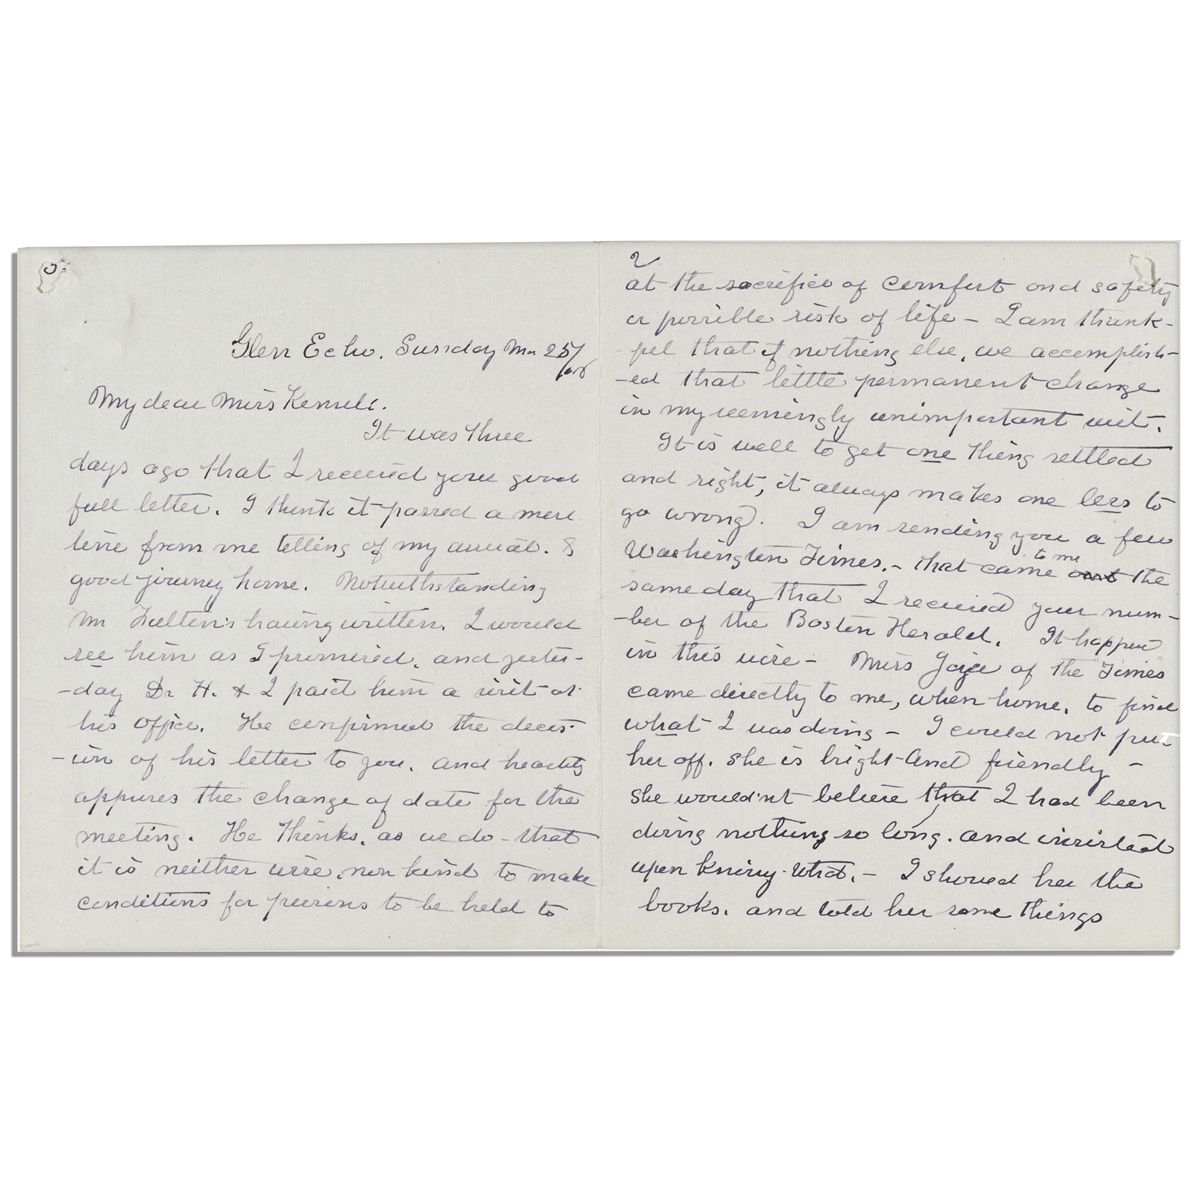 Glen Echo, Sunday Mar 25/06
My dear Miss Kensel.
It was three
days ago that I received your good
full letter. I think it passed a mere
line from me telling of my arrival. &
good jirney home. Notwithstanding
Mr Fulten's having written. I would
see him as I promised, and yester-
-day Dr H. & I paid him a visit at
his office. He confirmed the decis-
-ion of his letter to you. and heartily
appures the change of date for the
meeting. He thinks, as we do - that
it is neither wise, nor kind to make
conditions for persons to be held to
2
at the sacrifice of comfort and safety
or possible risk of life - I am thank-
-ful that if nothing else, we accomplish-
-ed that little permanent change
in my seemingly unimportant visit.
It is well to get one thing settled
and right, it always makes one less to
go wrong. I am sending you a few
Washington Times. - that came to me the
same day that I received your num-
-ber of the Boston Herald. It happend
in this wise - Miss Gaige of the "Times"
came directly to me, when home. to find
what I was doing - I could not put
her off. she is bright and friendly -
she wouldn't believe that I had been
doing nothing so long. and insisted
upon knowing what. - I showed her the
books. and told her some things